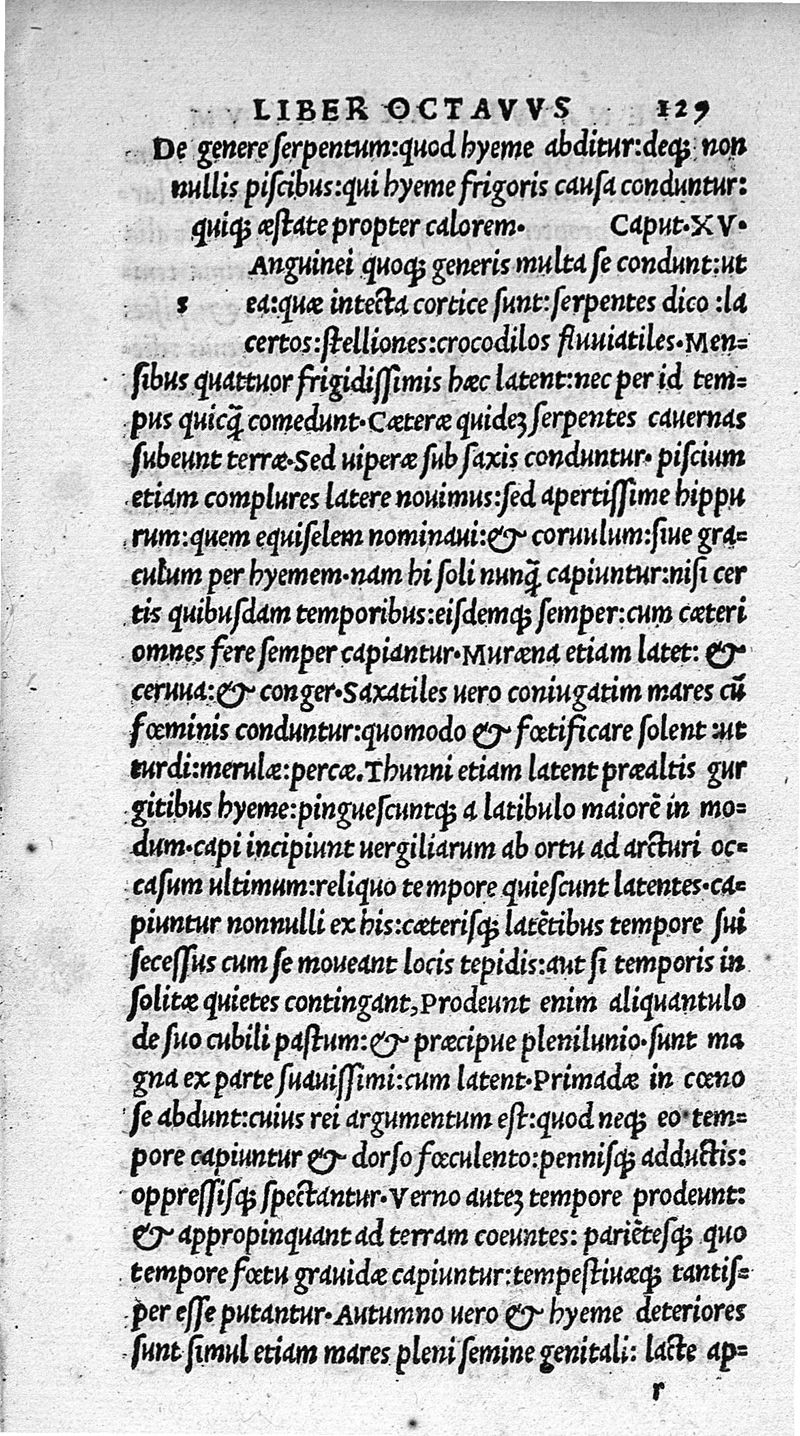 LIBER OCTAVVS 129
De genere serpentum:quod hyeme abditur:deq; non
nullis piscibus:qui hyeme frigoris causa conduntur:
quiq; æstate propter calorem. Caput.XV.
Anguinei quoq; generis multa se condunt:ut
s ea:quæ intecta cortice sunt:serpentes dico :la
certos:stelliones:crocodilos fluuiatiles.Men=
sibus quattuor frigidissimis hæc latent:nec per id tem=
pus quicq̃ comedunt.Cæteræ quidez serpentes cauernas
subeunt terræ.Sed uiperæ sub saxis conduntur. piscium
etiam complures latere nouimus:sed apertissime hippu
rum:quem equiselem nominaui:& coruulum:siue gra=
culum per hyemem.nam hi soli nunq̃ capiuntur:nisi cer
tis quibusdam temporibus:eisdemq; semper:cum cæteri
omnes fere semper capiantur.Muræna etiam latet: &
ceruua:& conger.Saxatiles uero coniugatim mares cũ
fœminis conduntur:quomodo & fœtificare solent :ut
turdi:merulæ:percæ.Thunni etiam latent præaltis gur
gitibus hyeme:pinguescuntq; a latibulo maiorẽ in mo=
dum.capi incipiunt uergiliarum ab ortu ad arcturi oc=
casum ultimum:reliquo tempore quiescunt latentes.ca=
piuntur nonnulli ex his:cæterisq; latẽtibus tempore sui
secessus cum se moueant locis tepidis:aut si temporis in
solitæ quietes contingant,Prodeunt enim aliquantulo
de suo cubili pastum:& præcipue plenilunio.sunt ma
gna ex parte suauissimi:cum latent.Primadæ in cœno
se abdunt:cuius rei argumentum est:quod neq; eo tem=
pore capiuntur & dorso fœculento:pennisq; adductis:
oppressisq; spectantur.Verno autez tempore prodeunt:
& appropinquant ad terram coeuntes: pariẽtesq; quo
tempore fœtu grauidæ capiuntur:tempestiuæq; tantis=
per esse putantur.Autumno uero & hyeme deteriores
sunt simul etiam mares pleni semine genitali: lacte ap=
r